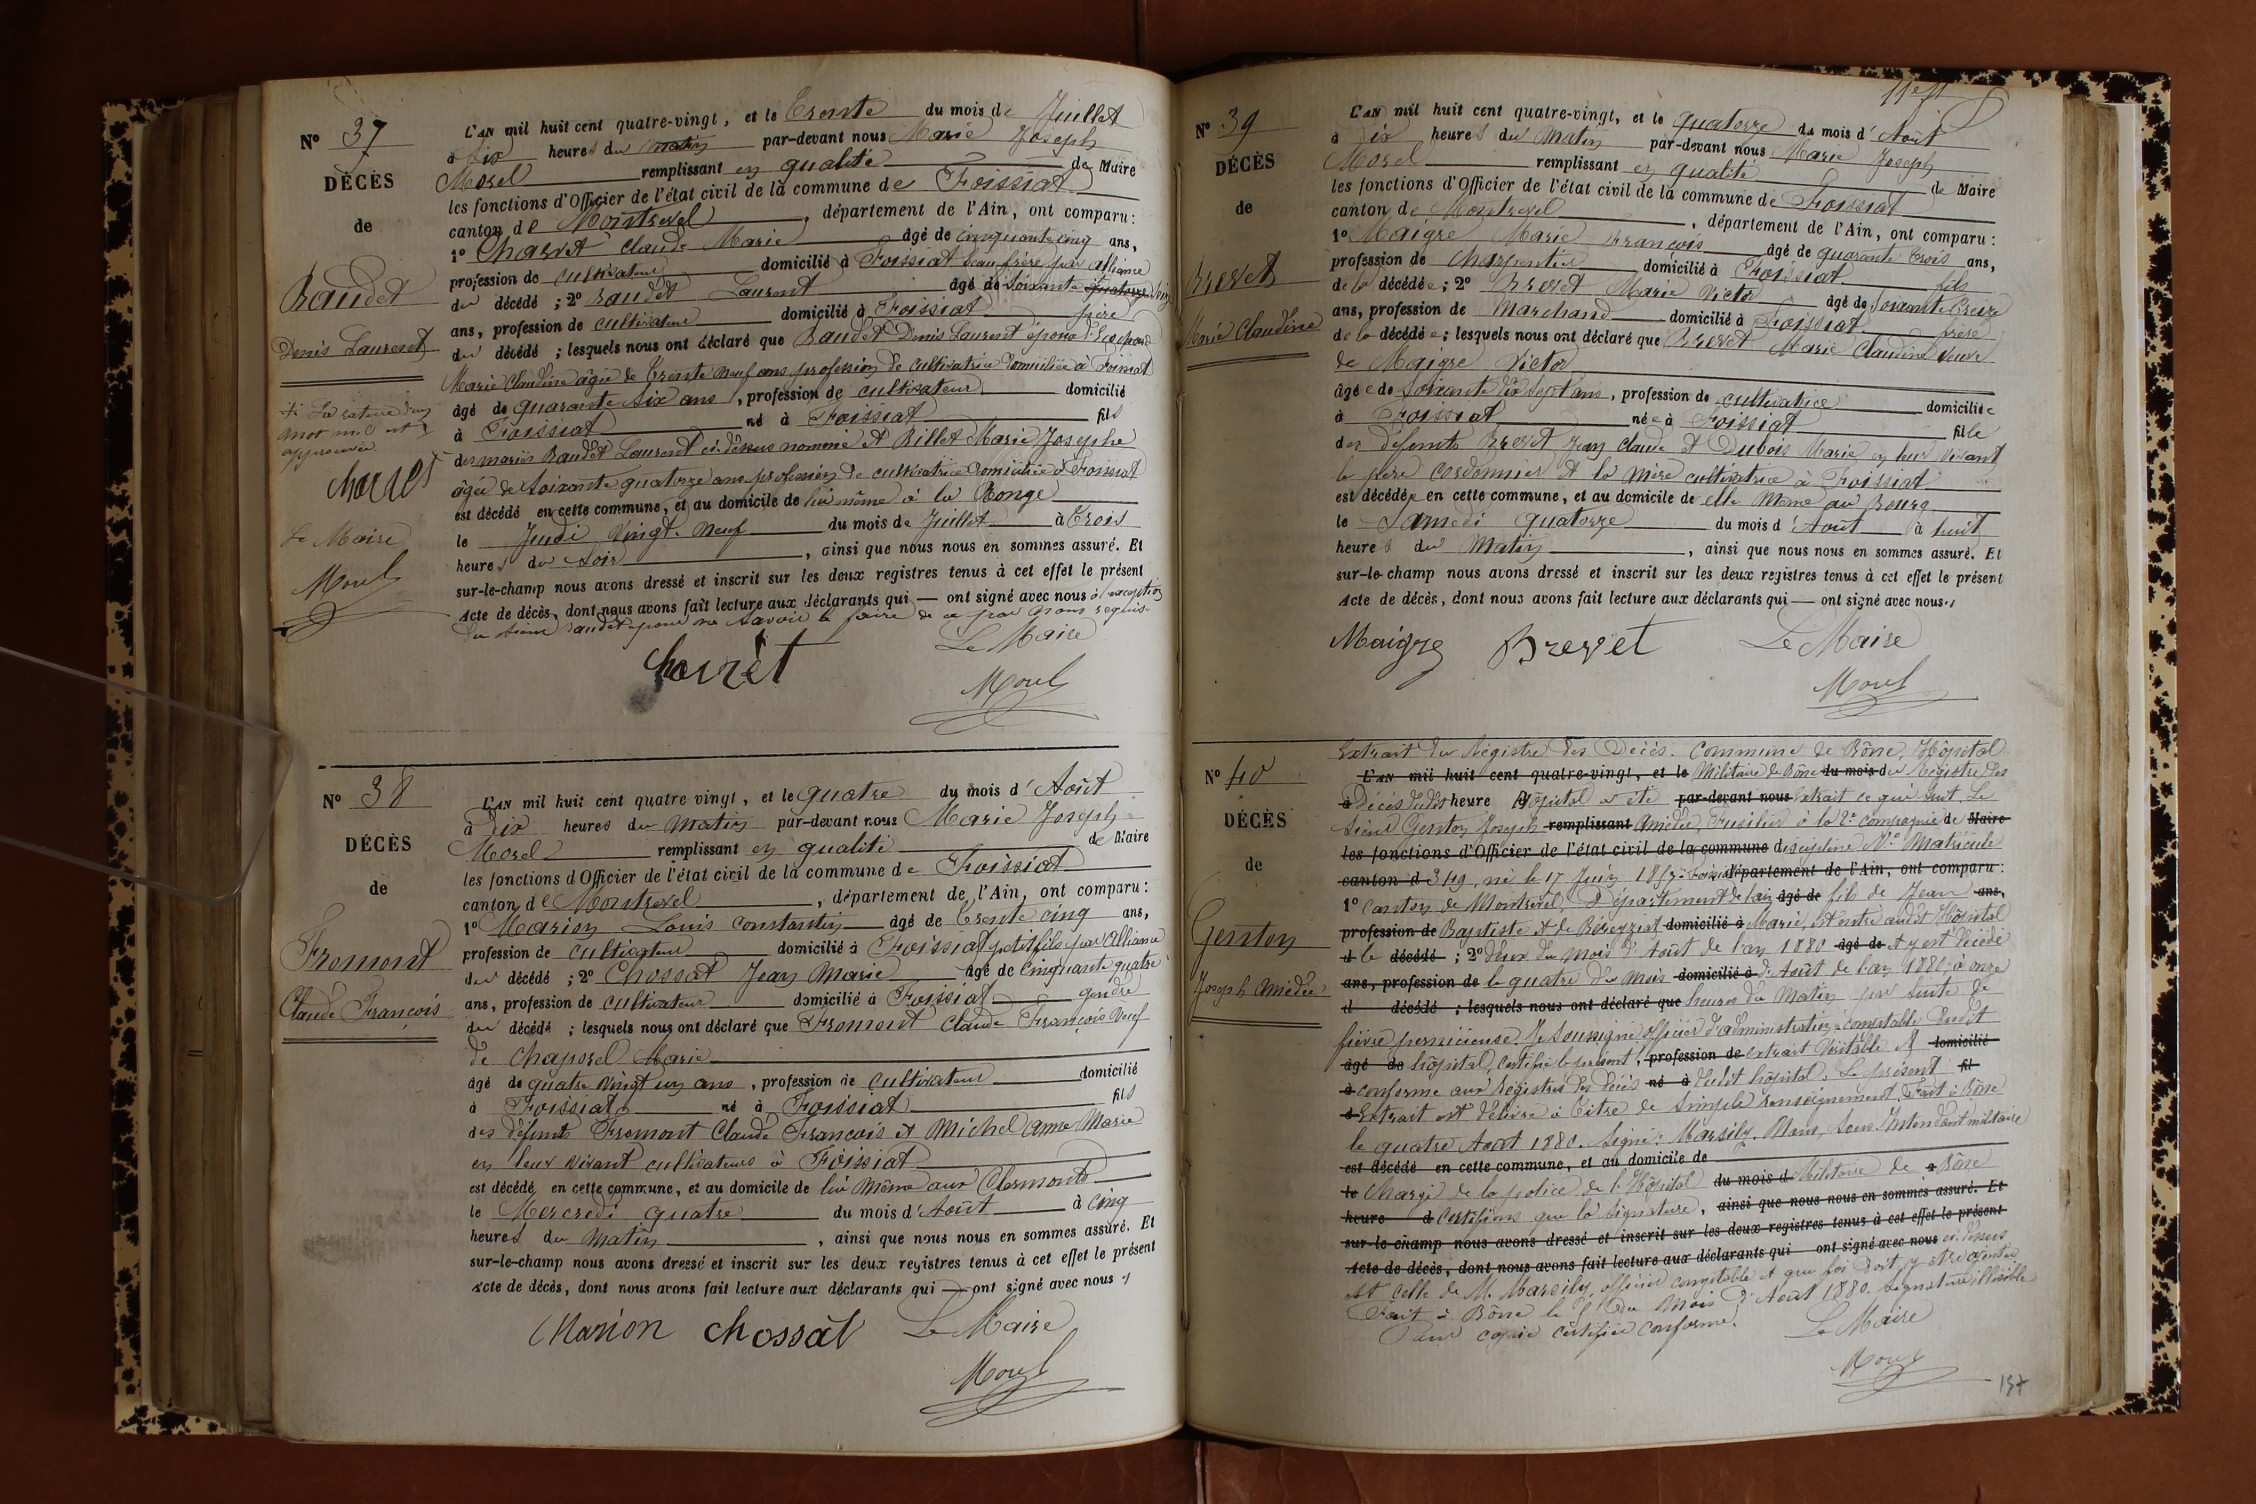 N° 37
DÉCÈS
de
Baudet
Denis Laurent
+ La rature d'un
mot nul est
approuvée
Charvet
Le Maire
Morel
L'AN mil huit cent quatre-vingt, et le Trente du mois de Juillet
à dix heures du matin par-devant nous Marie Joseph
Morel remplissant en qualité de Maire
les fonctions d'Officier de l'état civil de la commune de Foissiat
canton de Montrevel, département de l'Ain, ont comparu :
1° Charvet Claude Marie âgé de cinquante cinq ans,
profession de cultivateur domicilié à Foissiat beau frère par alliance
du décédé ; 2° Baudet Laurent âgé de soixante quatorze
ans, profession de cultivateur domicilié à Foissiat père
du décédé ; lesquels nous ont déclaré que Baudet Denis Laurent époux d'
Marie Claudine âgée de trente neuf ans profession de cultivatrice domiciliée à Foissiat
âgé de quarante six ans, profession de cultivateur domicilié
à Foissiat né à Foissiat fils
des mariés Baudet Laurent ci-dessus nommé et Billet Marie Josephe
âgée de soixante quatorze ans profession de cultivatrice domiciliée à Foissiat
est décédé en cette commune, et au domicile de lui même à la Ronge
le Jeudi vingt-neuf du mois de Juillet à trois
heures du soir, ainsi que nous nous en sommes assuré. Et
sur-le-champ nous avons dressé et inscrit sur les deux registres tenus à cet effet le présent
Acte de décès, dont nous avons fait lecture aux déclarants qui — ont signé avec nous à l'exception
du sieur Baudet pour ne savoir le faire de ce par nous requis
Charvet
Le Maire
Morel
N° 38
DÉCÈS
de
Fromont
Claude François
L'AN mil huit cent quatre vingt, et le quatre du mois d'Août
à dix heures du matin par-devant nous Marie Joseph
Morel remplissant en qualité de Maire
les fonctions d'Officier de l'état civil de la commune de Foissiat
canton de Montrevel, département de l'Ain, ont comparu :
1° Marion Louis Constantin âgé de trente cinq ans,
profession de cultivateur domicilié à Foissiat petit fils par alliance
du décédé ; 2° Chossat Jean Marie âgé de cinquante quatre
ans, profession de cultivateur domicilié à Foissiat gendre
du décédé ; lesquels nous ont déclaré que Fromont Claude François veuf
de Chaporel Marie
âgé de quatre vingt un ans, profession de cultivateur domicilié
à Foissiat né à Foissiat fils
des défunts Fromont Claude François et Michel Anne Marie
en leur vivant cultivateurs à Foissiat
est décédé en cette commune, et au domicile de lui même aux Clermonts
le Mercredi quatre du mois d'Août à cinq
heures du matin, ainsi que nous nous en sommes assuré. Et
sur-le-champ nous avons dressé et inscrit sur les deux registres tenus à cet effet le présent
Acte de décès, dont nous avons fait lecture aux déclarants qui — ont signé avec nous
Marion Chossat Le Maire
Morel
N° 39
DÉCÈS
de
Brevet
Marie Claudine
L'AN mil huit cent quatre-vingt, et le quatorze du mois d'Août
à dix heures du matin par-devant nous Marie Joseph
Morel remplissant en qualité de Maire
les fonctions d'Officier de l'état civil de la commune de Foissiat
canton de Montrevel, département de l'Ain, ont comparu :
1° Maigre Marie François âgé de quarante trois ans,
profession de charpentier domicilié à Foissiat fils
de la décédée ; 2° Brevet Marie Victor âgé de soixante treize
ans, profession de marchand domicilié à Foissiat frère
de la décédée ; lesquels nous ont déclaré que Brevet Marie Claudine veuve
de Maigre Victor
âgée de soixante dix sept ans, profession de cultivatrice domiciliée
à Foissiat née à Foissiat fille
des défunts Brevet Jean Claude et Dubois Marie en leur vivant
le père cordonnier et la mère cultivatrice à Foissiat
est décédée en cette commune, et au domicile de elle même au Bourg
le Samedi quatorze du mois d'Août à huit
heures du matin, ainsi que nous nous en sommes assuré. Et
sur-le-champ nous avons dressé et inscrit sur les deux registres tenus à cet effet le présent
Acte de décès, dont nous avons fait lecture aux déclarants qui — ont signé avec nous
Maigre Brevet Le Maire
Morel
N° 40
DÉCÈS
de
Genton
Joseph Amédée
Extrait du Régistre des Décès. Commune de Bône, Hôpital
L'AN mil huit cent quatre-vingt, et le Militaire de Bône du mois du Régistre des
à Décès dudit heure Hôpital a été par-devant nous extrait ce qui suit. Le
Sieur Genton Joseph remplissant Amédée, Fusilier à la 2e compagnie de Maire
les fonctions d'Officier de l'état civil de la commune discipline N° Matricule
canton d 349, né le 17 Juin 1857 à Foissiat département de l'Ain, ont comparu :
1° canton de Montrevel, Département de l'ain âgé de fils de Jean ans,
profession de Baptiste et de Béreyziat domicilié à Marie, est entré audit Hôpital
d le décédé ; 2° deux du mois d'Août de l'an 1880 âgé de et y est décédé
ans, profession de le quatre du mois domicilié à d'Août de l'an 1880, à onze
d décédé ; lesquels nous ont déclaré que heures du matin par suite de
fièvre pernicieuse. Je soussigné officier d'administration comptable dudit
âgé de hôpital, certifie le présent, profession de extrait véritable et domicilié
à conforme aux registres des décès né à dudit hôpital. Le présent fil
d Extrait est délivré à titre de simple renseignement. Fait à Bône
le quatre Août 1880. Signé : Marsily. Nous, Sous Intendant militaire
est décédé en cette commune, et au domicile de
le chargé de la police de l'Hôpital du mois d Militaire de à Bône
heure d certifions que la signature, ainsi que nous nous en sommes assuré. Et
sur-le-champ nous avons dressé et inscrit sur les deux registres tenus à cet effet le présent
Acte de décès, dont nous avons fait lecture aux déclarants qui ont signé avec nous ci-dessus
est celle de M. Marsily, officier comptable et que foi doit y être ajoutée
Fait à Bône le du mois d'Août 1880. Signature illisible
Pour copie certifiée conforme.
Le Maire
Morel
197